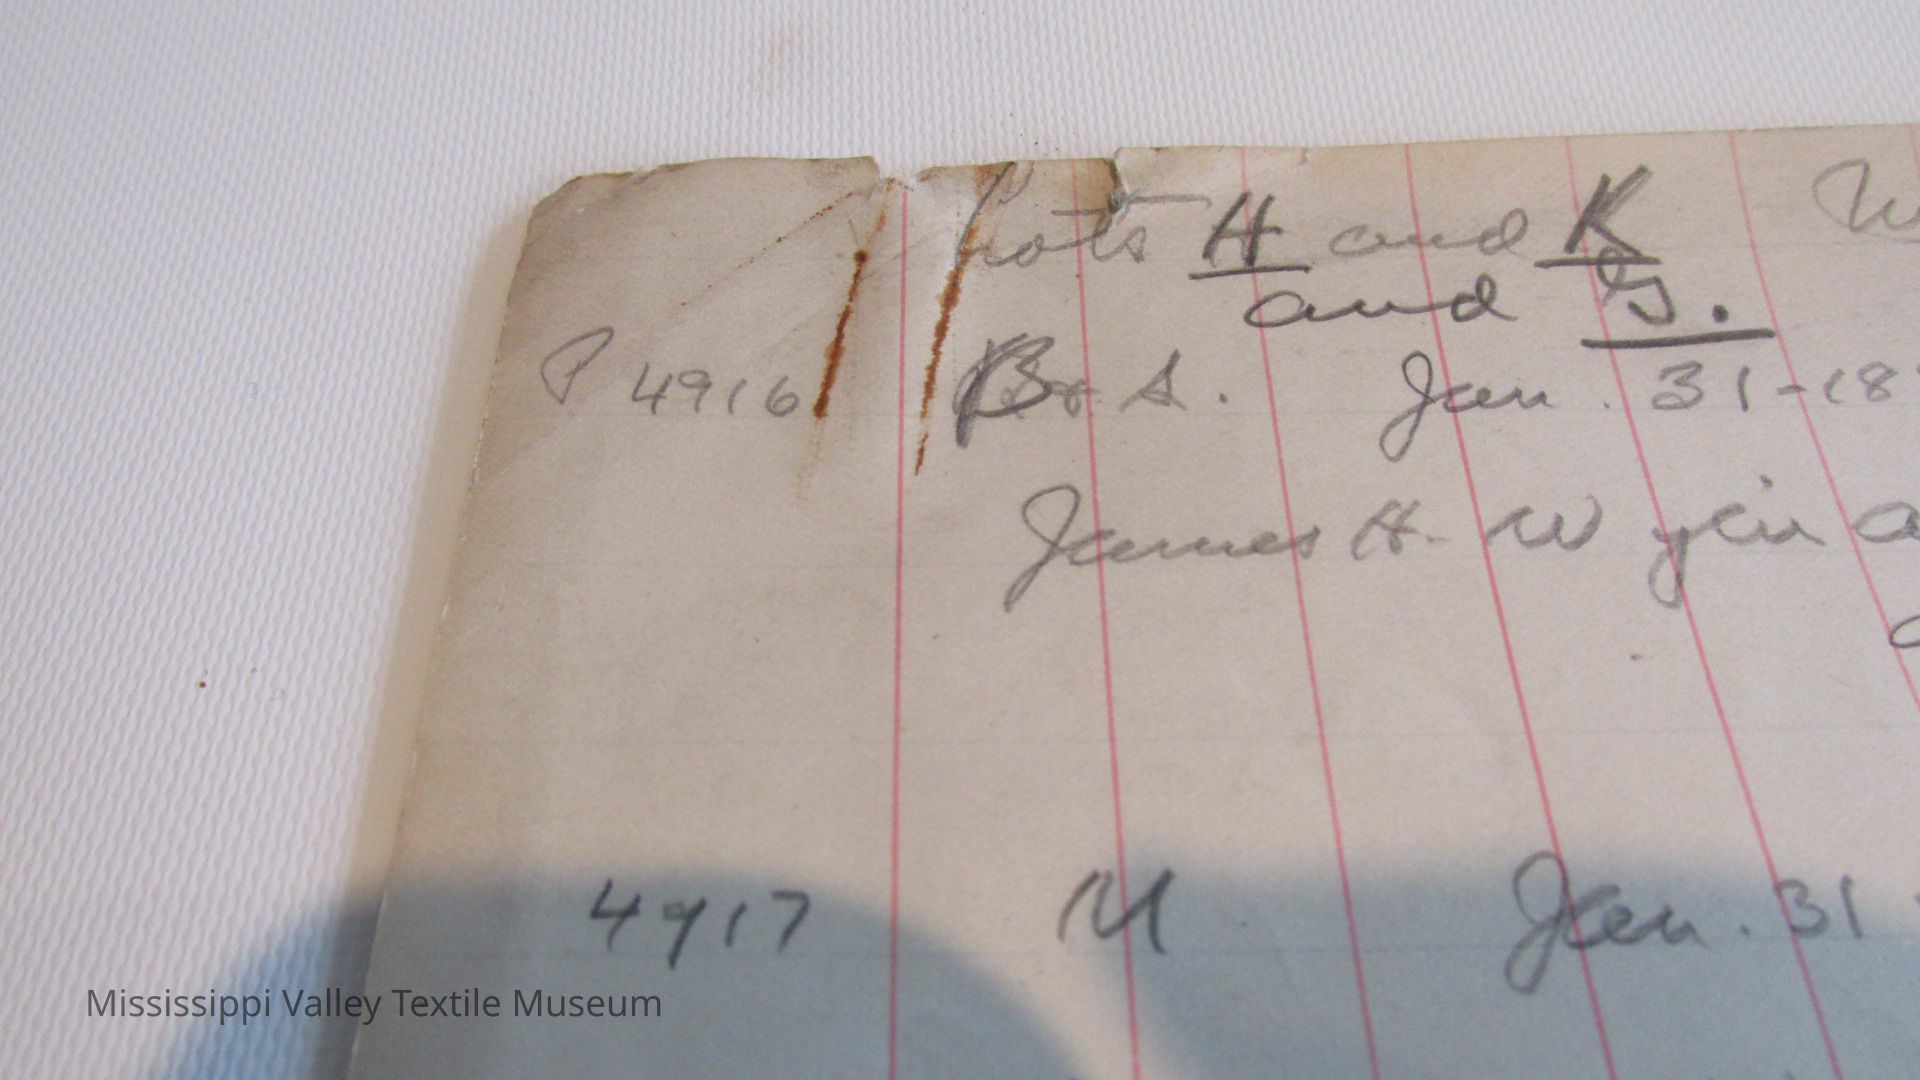 Lots H and K
and G.
P 4916 B & S. Jan. 31-18
James H. Wylie
4917 M Jan. 31
Mississippi Valley Textile Museum